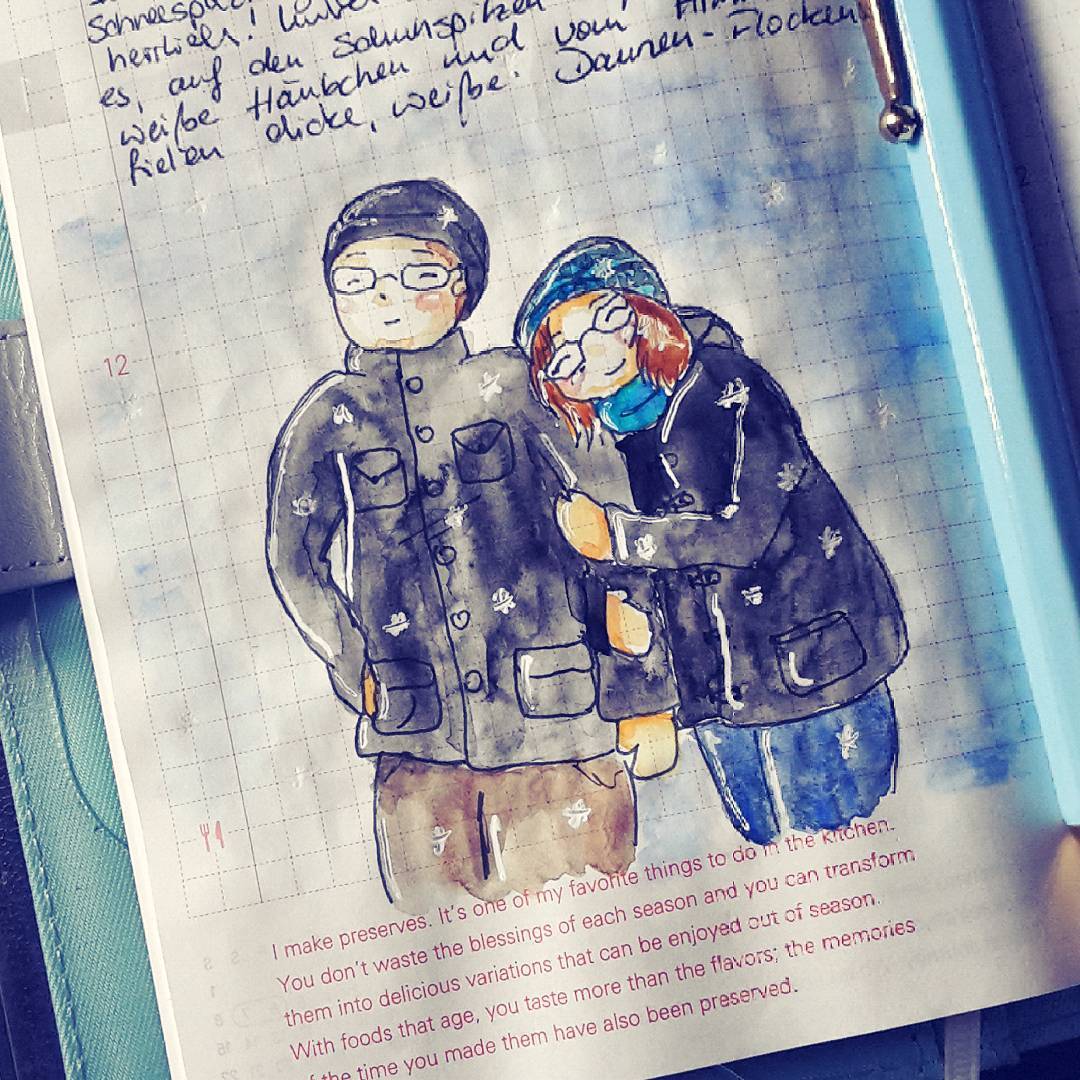 Schneespa
herrlich!
es, auf den
weiße Häubchen und vom
fielen dicke, weiße Daunen-Flocken
12
I make preserves. It's one of my favorite things to do in the kitchen.
You don't waste the blessings of each season and you can transform
them into delicious variations that can be enjoyed out of season.
With foods that age, you taste more than the flavors; the memories
of the time you made them have also been preserved.